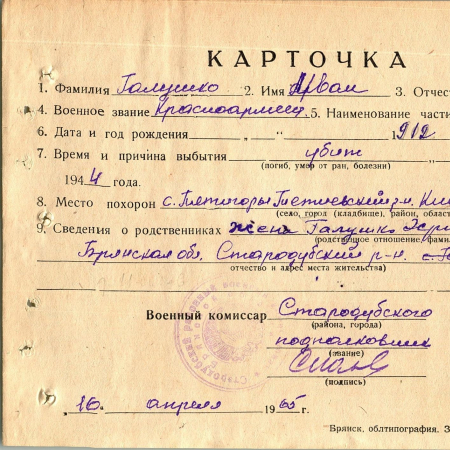 КАРТОЧКА
1. Фамилия Галушко 2. Имя Иван 3. Отчест
4. Военное звание Красноармеец 5. Наименование части
6. Дата и год рождения „ “ 1912
7. Время и причина выбытия убит „
(погиб, умер от ран, болезни)
1944 года.
8. Место похорон с. Пятигоры Тетиевский р-н. Кие
(село, город (кладбище), район, област
9. Сведения о родственниках жена Галушко
(родственное отношение, фами
Брянская обл. Стародубский р-н. с.
отчество и адрес места жительства)
Военный комиссар Стародубского
(района, города)
подполковник
(звание)
(подпись)
„16„ апреля 1965 г.
Брянск, облтипография. З